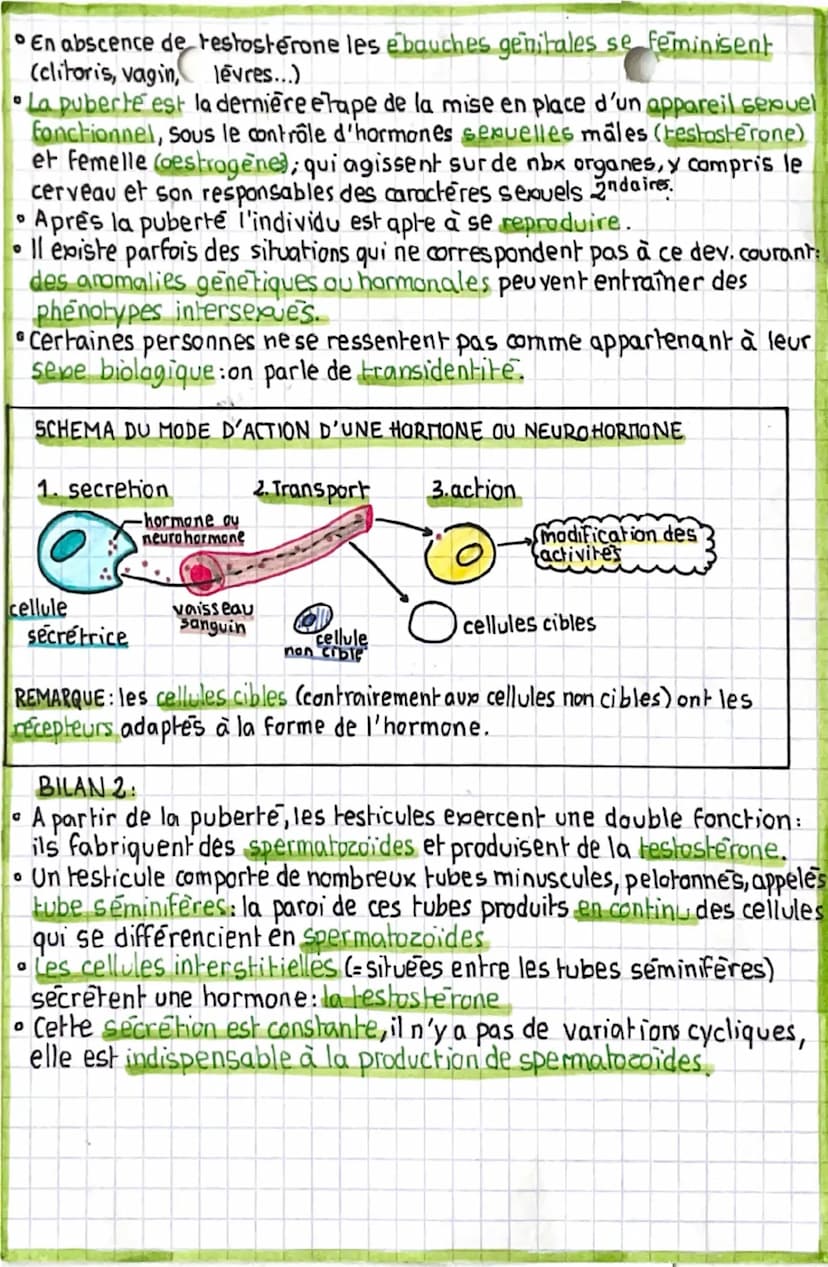 • En abscence de testostérone les ébauches génitales se féminisent
(clitoris, vagin, lèvres...)
• La puberté est la dernière étape de la mise en place d'un appareil sexuel
fonctionnel, sous le contrôle d'hormones sexuelles mâles (testostérone)
et femelle (oestrogène); qui agissent sur de nbx organes, y compris le
cerveau et son responsables des caractères sexuels 2ndaires.
• Après la puberté l'individu est apte à se reproduire.
• Il existe parfois des situations qui ne correspondent pas à ce dev. courant:
des anomalies génétiques ou hormonales peuvent entraîner des
phénotypes intersexués.
• Certaines personnes ne se ressentent pas comme appartenant à leur
sexe biologique: on parle de transidentité.
SCHEMA DU MODE D'ACTION D'UNE HORMONE OU NEUROHORMONE
1. secretion 2. Transport 3. action
hormone ou
neurohormone
modification des
activités
cellule
sécrétrice
vaisseau
sanguin
cellule
non cible
cellules cibles
REMARQUE: les cellules cibles (contrairement aux cellules non cibles) ont les
récepteurs adaptés à la forme de l'hormone.
BILAN 2:
• A partir de la puberté, les testicules expercent une double fonction:
ils fabriquent des spermatozoïdes et produisent de la testostérone.
• Un testicule comporte de nombreux tubes minuscules, pelotonnés, appelés
tube séminifères: la paroi de ces tubes produits en continu des cellules
qui se différencient en spermatozoïdes
• Les cellules interstitielles (= situées entre les tubes séminifères)
sécrètent une hormone: la testostérone
• Cette sécrétion est constante, il n'y a pas de variations cycliques,
elle est indispensable à la production de spermatozoïdes.